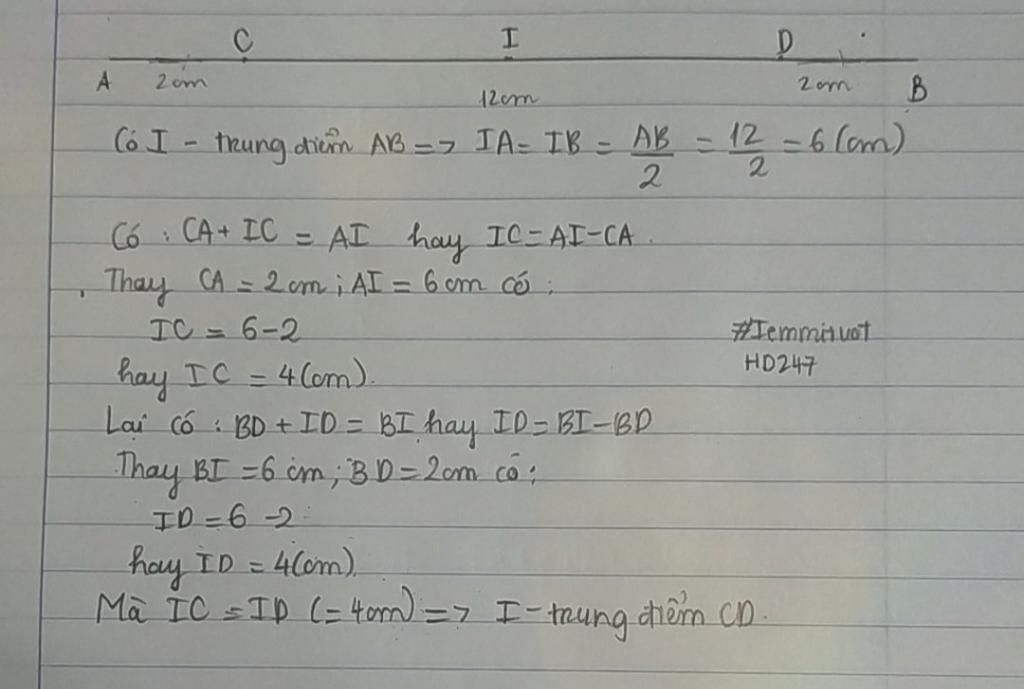 C I D
A 2cm 12cm 2cm B
Có I - trung điểm AB => IA = IB = AB/2 = 12/2 = 6 (cm)
Có : CA + IC = AI hay IC = AI - CA.
Thay CA = 2cm ; AI = 6cm có :
IC = 6 - 2
#Iemmiruot
HD247
hay IC = 4(cm).
Lại có : BD + ID = BI hay ID = BI - BD
Thay BI = 6 cm ; BD = 2cm có :
ID = 6 - 2
hay ID = 4(cm)
Mà IC = ID (= 4cm) => I - trung điểm CD.